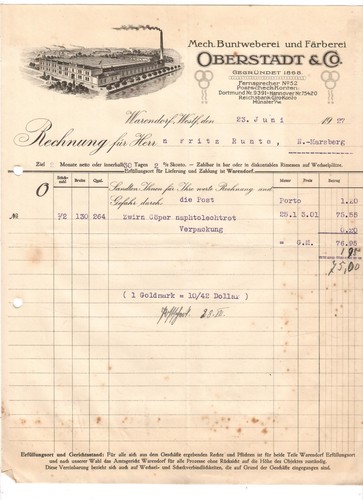 Mech. Buntweberei und Färberei
OBERSTADT & CO.
GEGRÜNDET 1868.
Fernsprecher No 52
Postscheck-Konten:
Dortmund Nr. 9391 - Hannover Nr. 75420
Reichsbank-Giro-Konto
Münster i/W.
Warendorf, Westf., den 23. Juni 1927
Rechnung für Herrn Fritz Runte, N.-Marsberg
Ziel Monate netto oder innerhalb 30 Tagen 2 % Skonto. - Zahlbar in bar oder in diskontablen Rimessen auf Wechselplätze.
Erfüllungsort für Lieferung und Zahlung ist Warendorf.
Stückzahl Breite Qual. Sandten Ihnen für Ihre werte Rechnung und
Gefahr durch: die Post Porto 1.20
№ 1/2 130 264 Zwirn Cöper naphtolechtrot 25.1 3.01 75.55
Verpackung 0.20
= G.M. 76.95
75,00
( 1 Goldmark = 10/42 Dollar )
Erfüllungsort und Gerichtsstand: Für alle sich aus dem Geschäfte ergebenden Rechte und Pflichten ist für beide Teile Warendorf Erfüllungsort
und nach unserer Wahl das Amtsgericht Warendorf für alle Prozesse ohne Rücksicht auf die Höhe des Objektes zuständig.
Diese Vereinbarung bezieht sich auch auf Wechsel- und Scheckverbindlichkeiten, die auf Grund der Geschäfte eingegangen sind.